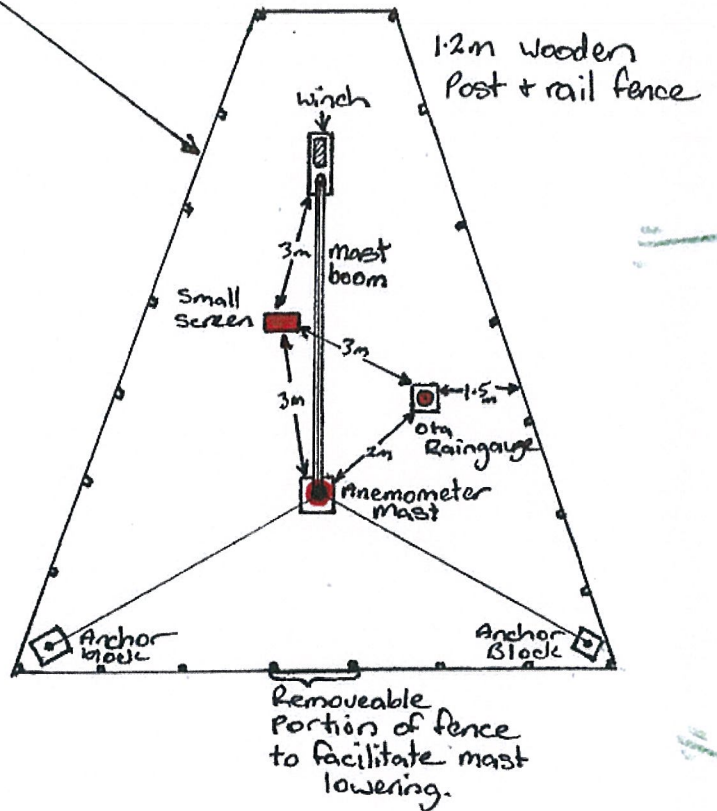 1.2m wooden
Post + rail fence
winch
3m
mast
boom
Small
Screen
3m
3m
1.5m
Ota
Raingauge
2m
Anemometer
Mast
Anchor
block
Anchor
Block
Removeable
Portion of fence
to facilitate mast
lowering.